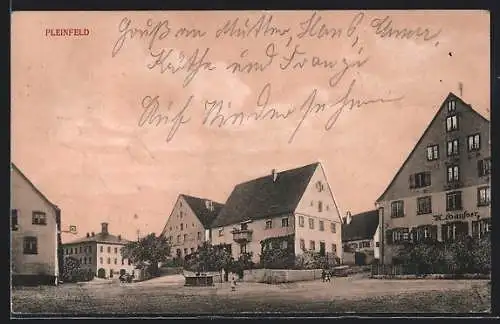 PLEINFELD
Gruß an Mutter, Hans,
Käthe und Franzi
Auf Wiedersehn